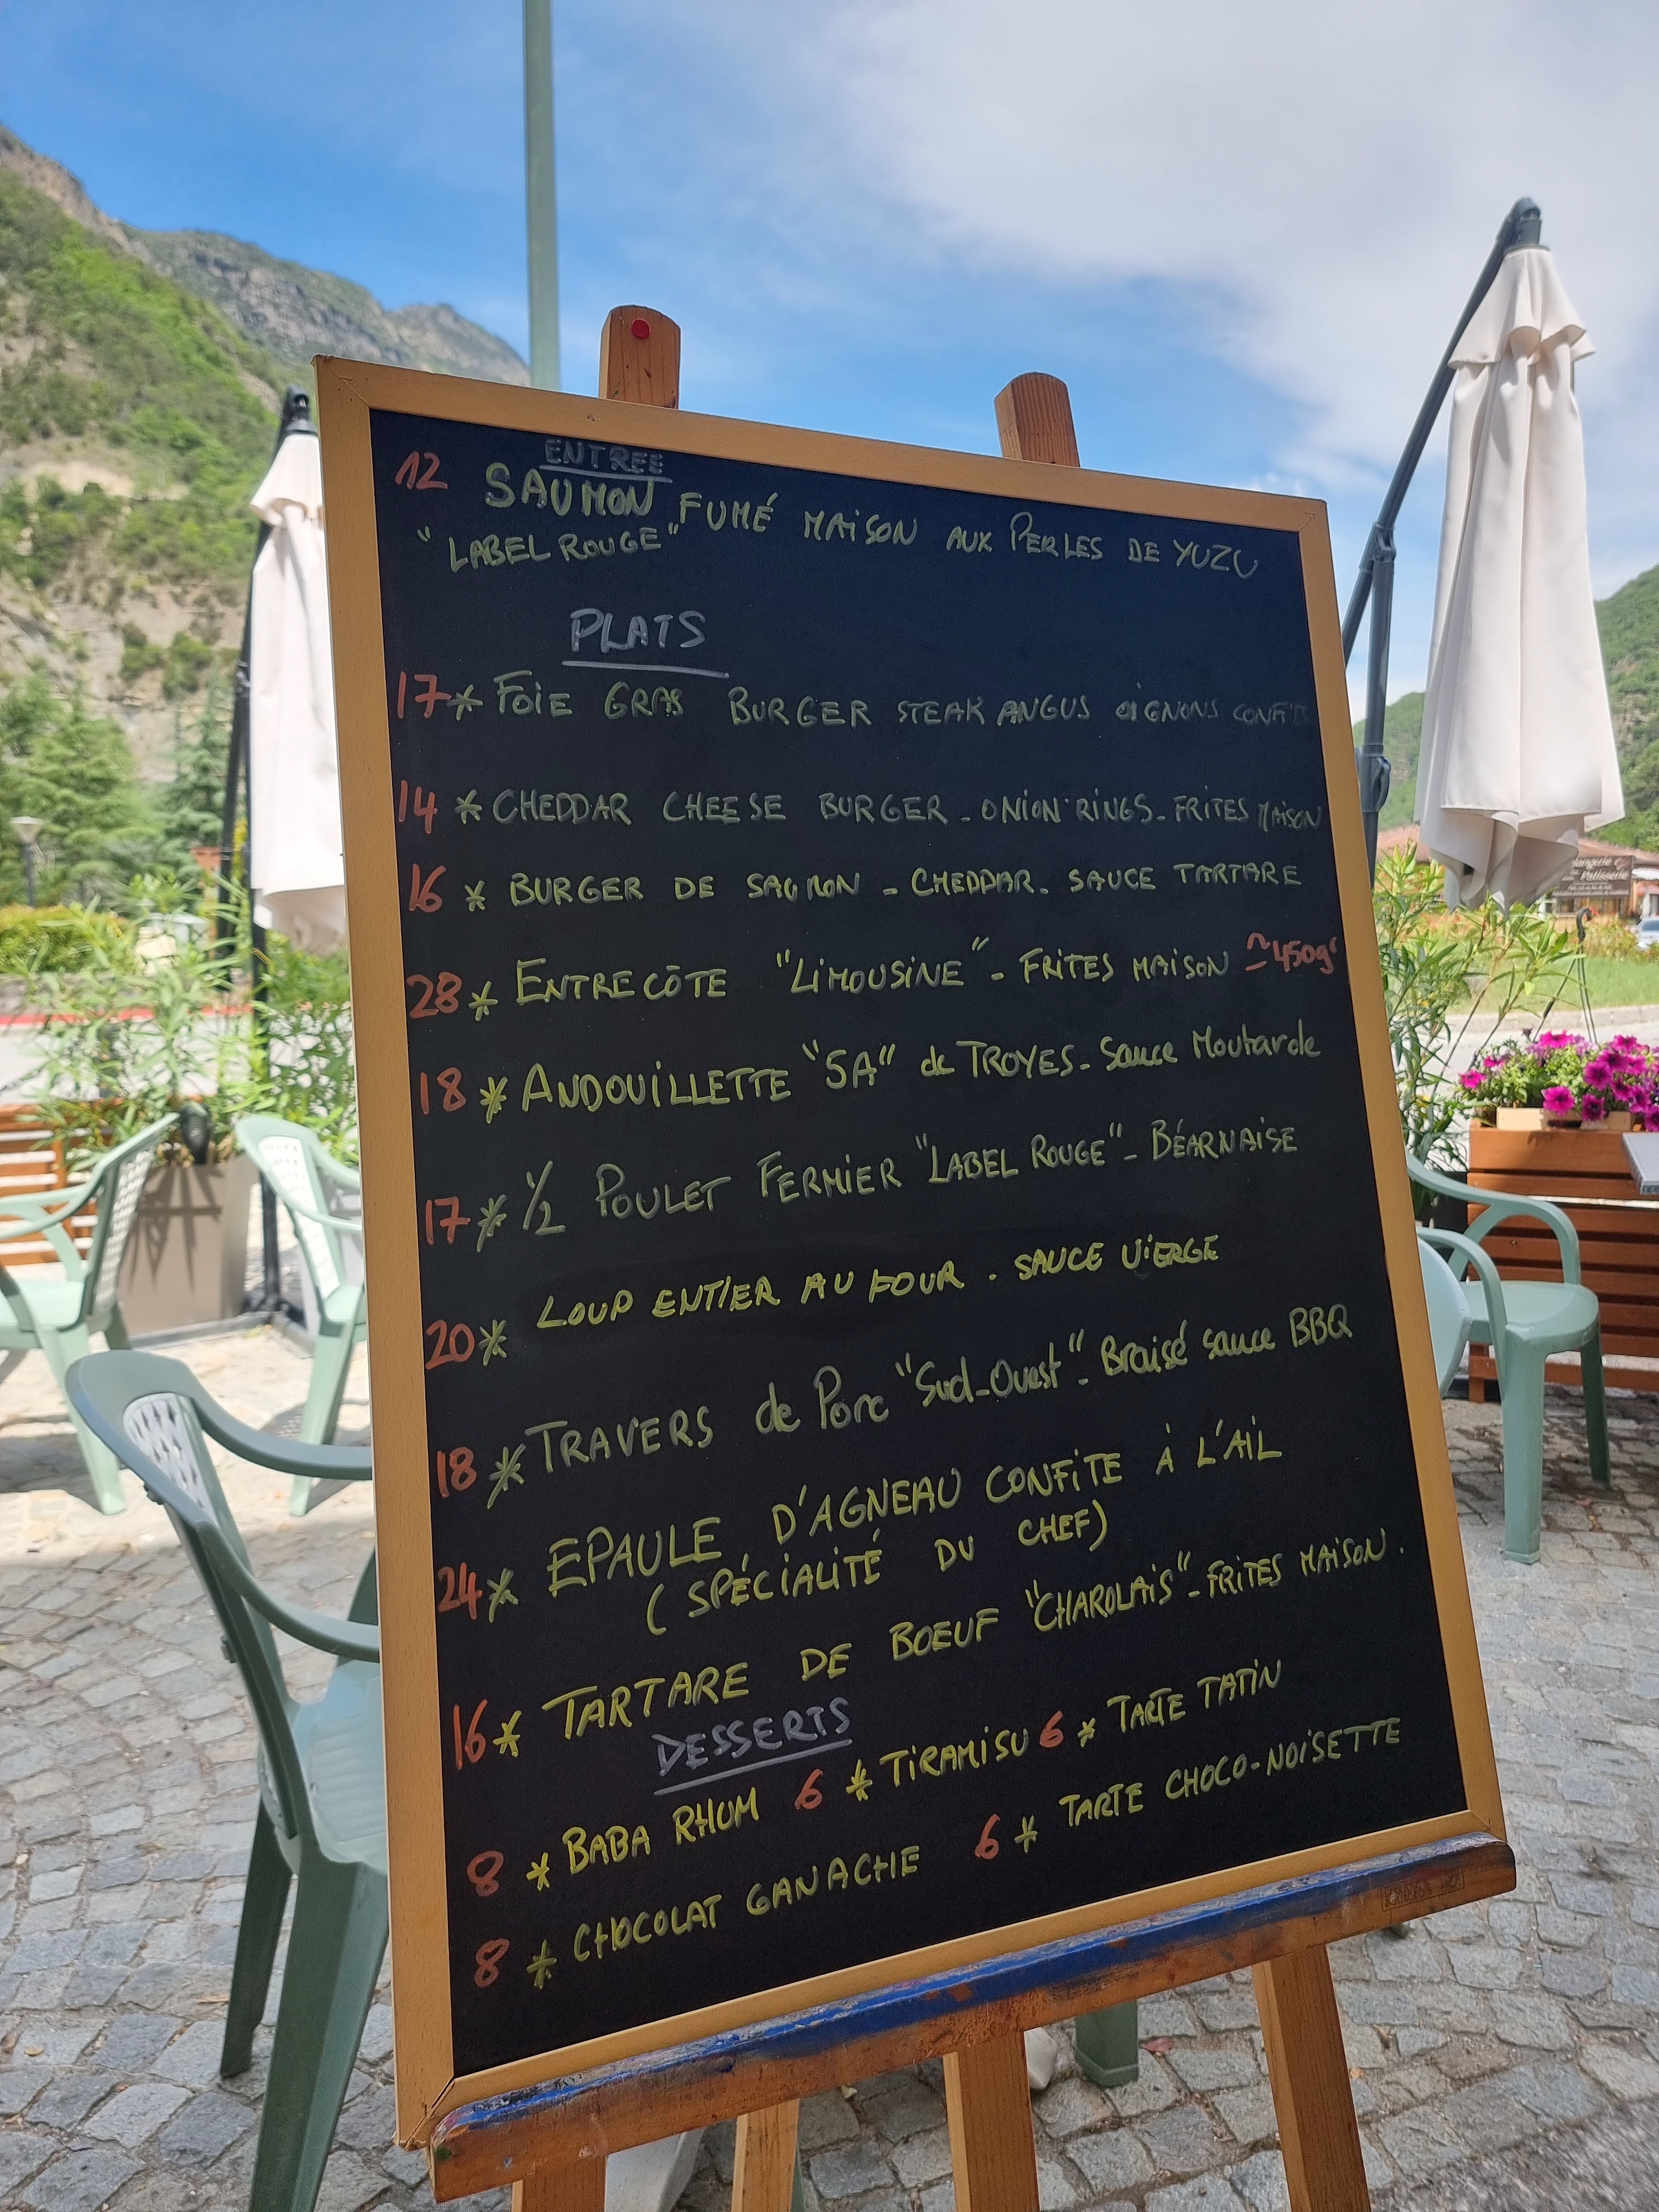 ENTREE
12 SAUMON FUMÉ MAISON AUX PERLES DE YUZU
"LABEL ROUGE"
PLATS
17* FOIE GRAS BURGER STEAK ANGUS OIGNONS CONFITS
14 * CHEDDAR CHEESE BURGER - ONION RINGS - FRITES MAISON
16 * BURGER DE SAUMON - CHEDDAR - SAUCE TARTARE
28 * ENTRECÔTE "LIMOUSINE" - FRITES MAISON ≃450g
18 * ANDOUILLETTE "5A" de TROYES - Sauce Moutarde
17 * 1/2 POULET FERMIER "LABEL ROUGE" - BÉARNAISE
20 * LOUP ENTIER AU FOUR . SAUCE VIERGE
18 * TRAVERS de Porc "Sud-Ouest" - Braisé sauce BBQ
24 * EPAULE D'AGNEAU CONFITE À L'AIL
(SPÉCIALITÉ DU CHEF)
16 * TARTARE DE BOEUF "CHAROLAIS" - FRITES MAISON.
DESSERTS
8 * BABA RHUM 6 * TIRAMISU 6 * TARTE TATIN
8 * CHOCOLAT GANACHE 6 * TARTE CHOCO-NOISETTE
Patisserie